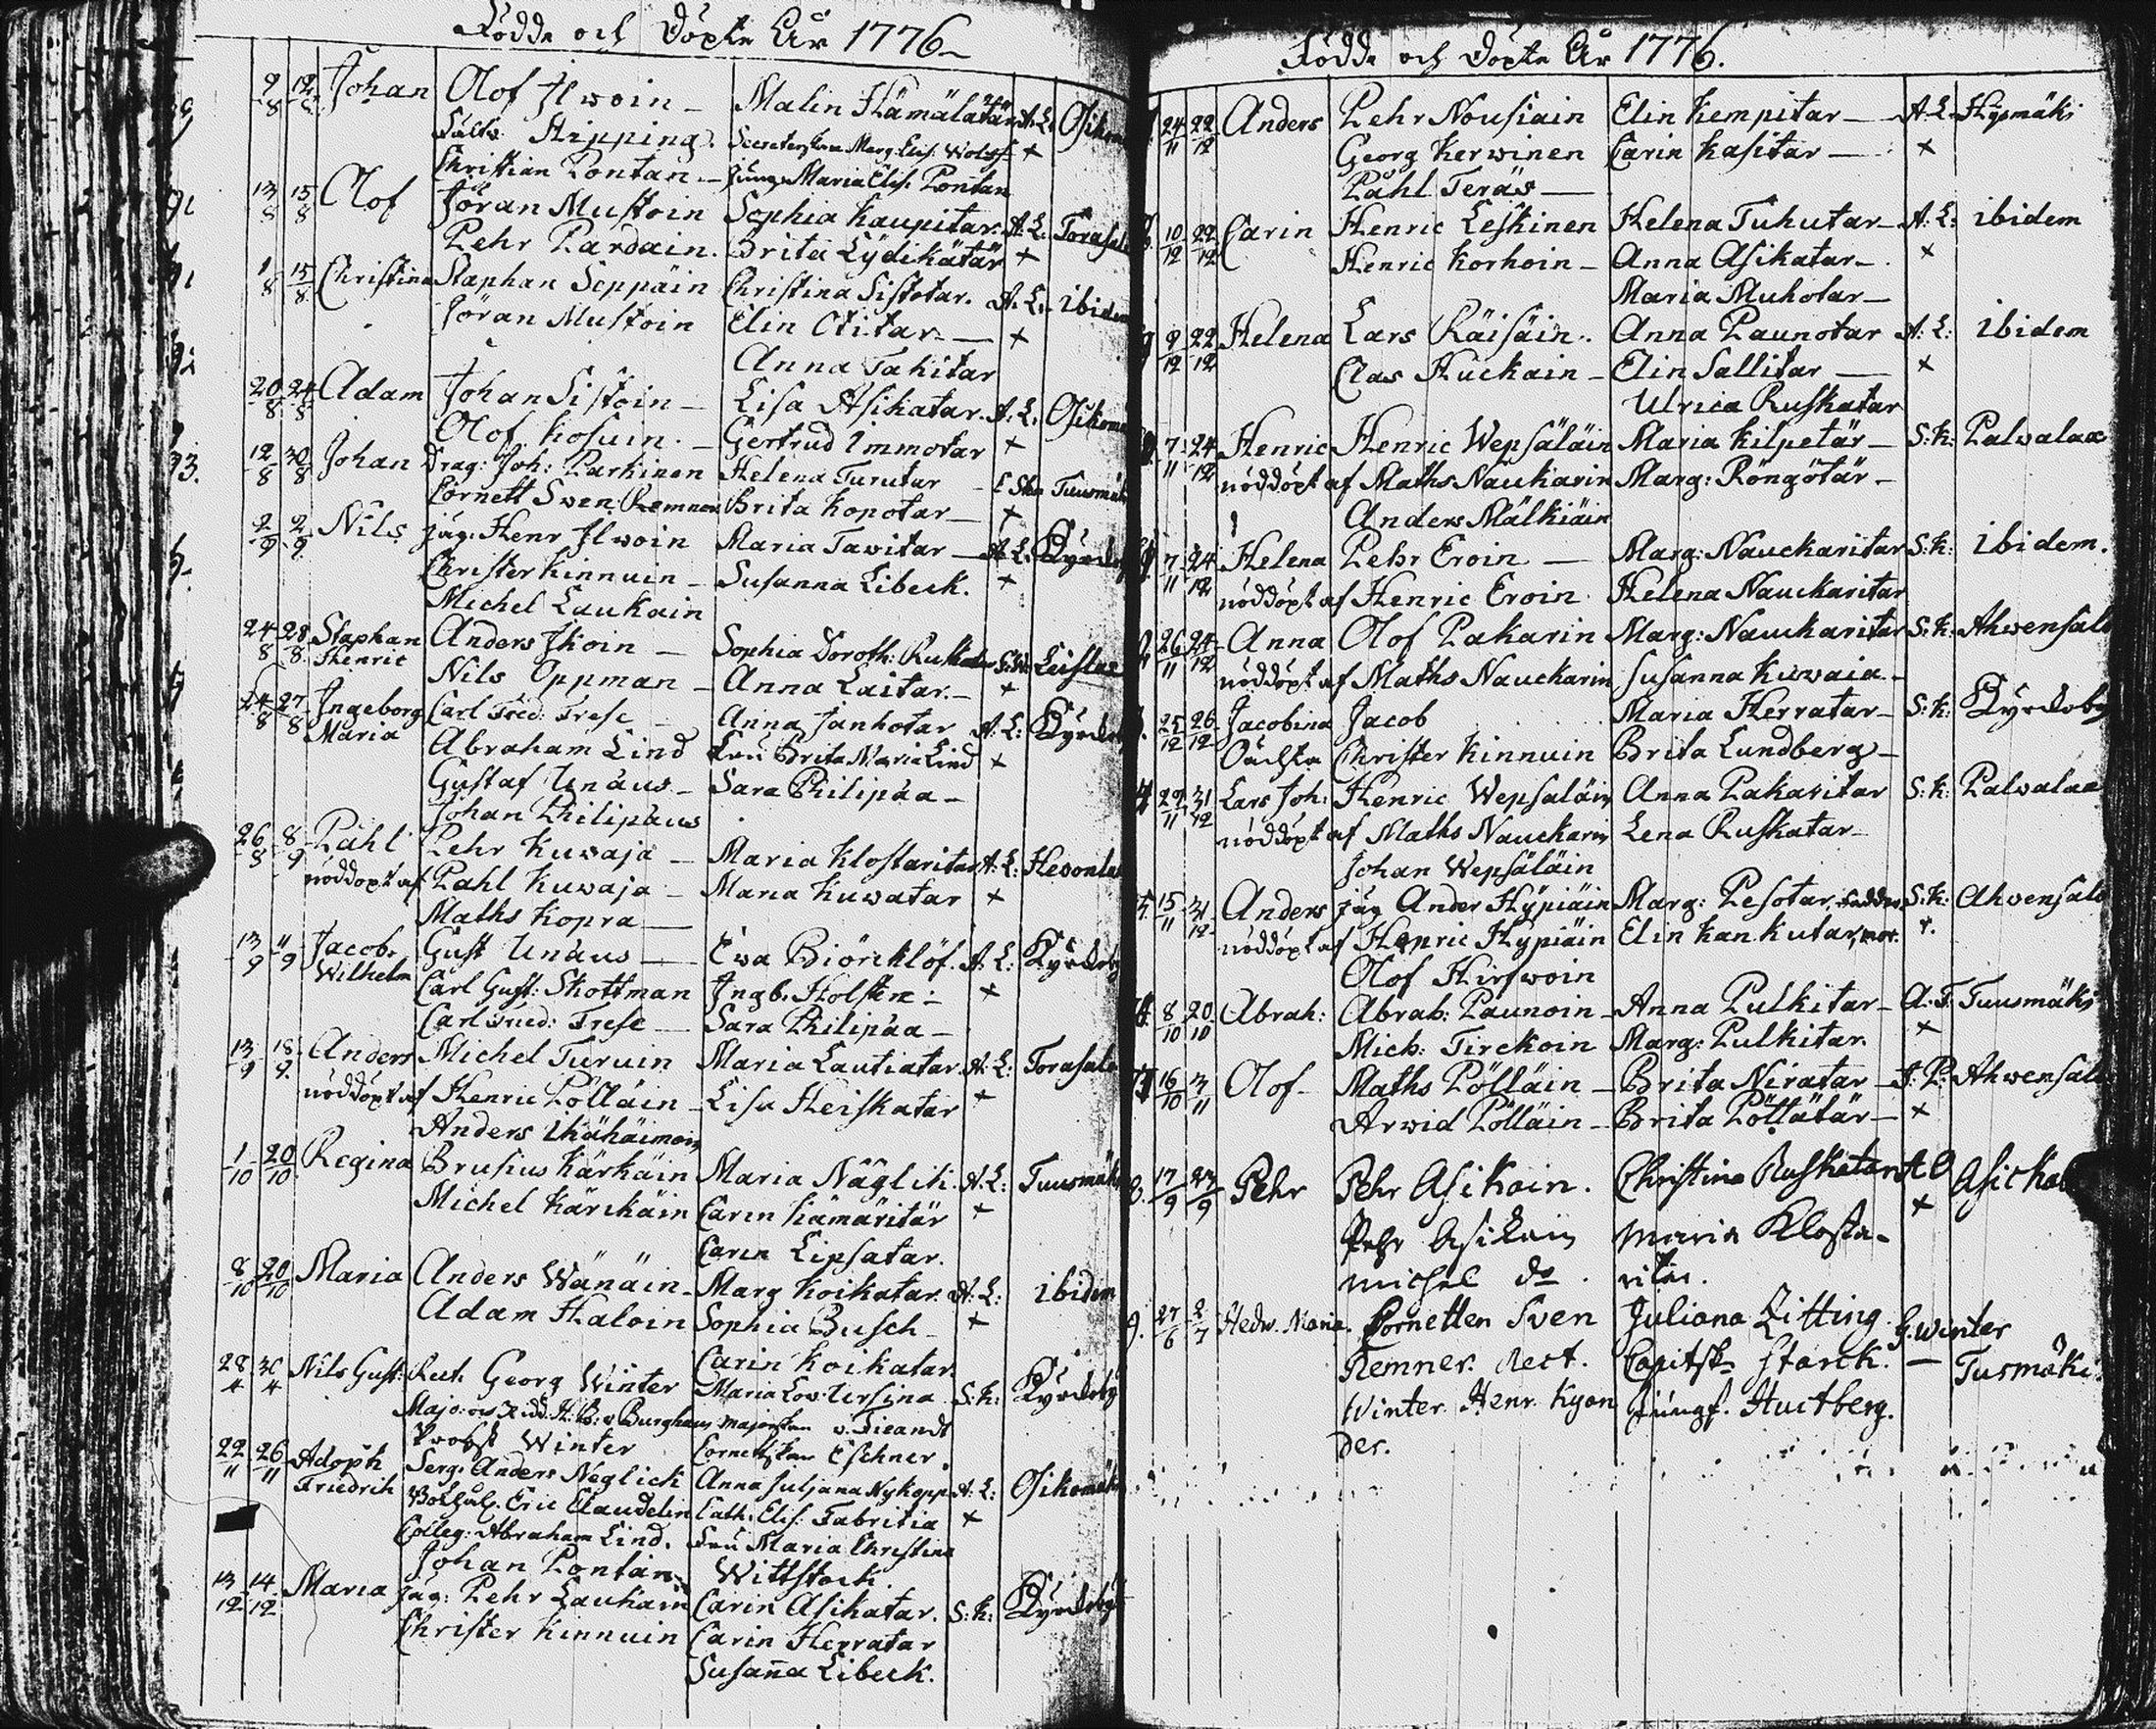 Födde och Döpte År 1776
9/8 12/8 Johan Olof Ilwoin Malin Hämälätär A: L: Osikom
Hipping. Secreterskan Marg: Elis: Wolff +
Christian Pontan Jungf. Maria Elis: Pontan
13/8 15/8 Olof Jöran Mustoin Sophia Kaupitar A: L: Torasalo
Pehr Pardain. Brita Lydikätär +
1/8 15/8 Christina Staphan Seppäin Christina Sistotar. A: L: ibidem
Jöran Mustoin Elin Otitar +
Anna Takitar
20/8 24/8 Adam Johan Sistoin Lisa Asikatar. A: L: Osikom
Olof Kosuin. Gertrud Immotar +
93. 12/8 30/8 Johan Drag: Joh: Parkinen Helena Turutar Tuusmäk
Cornett Swen Remner Brita Kopotar +
2/9 2/9 Nils jäg: Henr Ilwoin Maria Tawitar A: L: Kyrkoby
Christer Kinnuin Susanna Libeck. +
Michel Laukain
24/8 28/8 Staphan Anders Ikoin Sophia Doroth: Ruskatar G: W: Leislax
Henric Nils Oppman Anna Laitar +
24/8 27/8 Ingeborg Carl Fred: Trese Anna Janhotar A: L: Kyrkoby
Maria Abraham Lind Fru Brita Maria Lind +
Gustaf Unæus Sara Philipæa
Johan Philipæus
26/8 8/9 Påhl Pehr Kuwaja Maria Klostaritar A: L: Hevonlax
nöddöpt af Pahl Kuwaja Maria Kuwatar +
Maths Kopra
13/9 11/9 Jacob Gust Unæus Ewa Biörcklöf. A: L: Kyrkoby
Wilhelm Carl Gust: Skottman Ingb. Holsten +
Carl Fried: Trese Sara Philipæa
13/9 18/9 Anders Michel Turuin Maria Lautiatar A: L: Torasalo
nöddöpt af Henric Pölläin Lisa Heiskatar +
Anders Ikähäimoin
1/10 20/10 Regina Brusius Kärkäin Maria Näglik. A: L: Tuusmäki
Michel Kärckäin Carin Kämäritär +
Carin Lipsatar.
8/10 20/10 Maria Anders Wänäin Marg Koikatar. A: L: ibidem
Adam Haloin Sophia Busch +
Carin Koikatar
28/4 30/4 Nils Gust: Rect. Georg Winter Maria Lov: Ursina S: K: Kyrkoby
Major och Ridd: H: B: v Burghaus Majorskan v. Tieandt
Probst Winter Cornettskan Eschner.
22/11 26/11 Adoph Serg: Anders Neglick Anna Juljana Nykopp A: L: Osikomäki
Friedrih Bokhål. Eric Claudelin Cath: Elis: Fabritia +
Colleg: Abraham Lind. Fru Maria Christina
Johan Pontan Wittstock.
13/12 14/12 Maria jäg: Pehr Laukain Carin Asikatar. S: K: Kyrkoby
Christer Kinnuin Carin Herratar
Susaña Libeck.
Födde och Döpte År 1776.
24/11 22/12 Anders Pehr Nousiain Elin Kempitar A: L: Hypmäki
Georg Kerwinen Carin Kasitar +
Påhl Teräs
10/12 22/12 Carin Henric Leskinen Helena Tuhutar A: L: ibidem
Henric Korhoin Anna Asikatar +
Maria Muhotar
9/12 22/12 Helena Lars Räisäin. Anna Paunotar A: L: ibidem
Clas Huckain Elin Sallitar +
Ulrica Ruskatar
7/11 24/12 Henric Henric Wepsäläin Maria Kilpetär S: K: Palvalax
nöddöpt af Maths Naukarin Marg: Röngötär
Anders Mälkiäin
7/11 24/12 Helena Pehr Eroin Marg: Nauckaritar S: K: ibidem.
nöddöpt af Henric Eroin Helena Nauckaritar
26/11 24/12 Anna Olof Pakarin Marg: Nauckaritar S: K: Ahvensalo
nöddöpt af Maths Nauckarin Susanna Kuwaia
25/12 26/12 Jacobina Jacob Maria Herratar S: K: Kyrkoby
Oächta Christer Kinnuin Brita Lundberg
29/11 31/12 Lars Joh: Henric Wepsaläin Anna Pakaritar S: K: Palvalax
nöddöpt af Maths Nauckarin Lena Ruskatar
Johan Wepsäläin
15/11 31/12 Anders jäg Ander Hypiäin Marg: Pesotar S: K: Ahvensalo
nöddöpt af Henric Hypiäin Elin Kankutar +.
Olof Hirswoin
8/10 20/10 Abrah: Abrah: Paunoin Anna Pulkitar A: F: Tuusmäki
Mich: Tirckoin Marg: Pulkitar. +
16/10 3/11 Olof Maths Pölläin Brita Niratar J: P: Ahvensalo
Arwid Pölläin Brita Pöllätär +
17/9 23/9 Pehr Pehr Asikain. Christina Ruskatar A O Asickal
Pehr Asikain Maria Klosta- +
Michel do. ritar.
27/6 2/7 Hedv. Maria. Cornetten Sven Juliana Zitting G. Winter
Remner. Rect. Capitsk. Starck. Tusmäki
Winter. Henr. Kyan Jungf. Huctberg.
der.